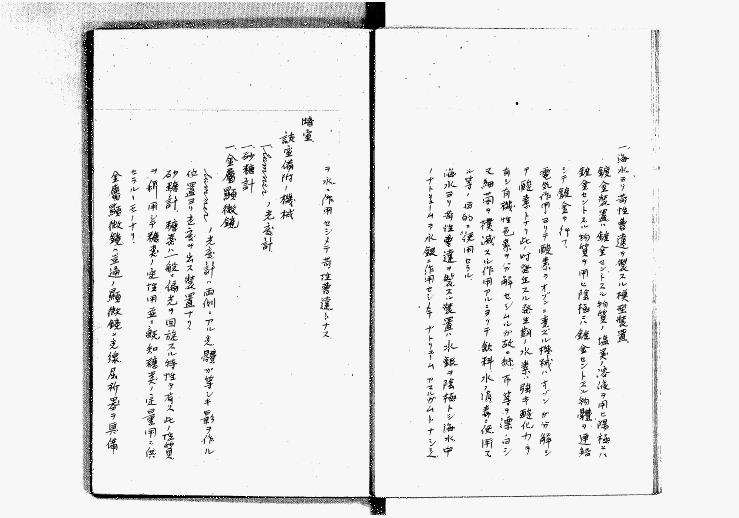 一、海水ヨリ苛性曹達ヲ製スル模型装置
鍍金装置ハ鍍金セントスル物質ノ塩類ノ溶液ヲ用ヒ陽極ニハ
鍍金セントスル物質ヲ用ヒ陰極ニハ鍍金セントスル物體ヲ連結
シテ鍍金ヲ行フ
電気作用ヨリテ酸素ヲオゾンニ変ズル機械ハオゾンガ分解シ
テ酸素トナリ此ノ時発生スル発生期ノ水素ハ強キ酸化力ヲ
有シ有機性色素ヲ分解セシムルガ故ニ紙布等ヲ漂白シ
又細菌ヲ撲滅スル作用アルニヨリテ飲料水ノ消毒ニ使用ス
ル等ノ目的ニ使用セラル
海水ヨリ苛性曹達ヲ製スル装置ハ水銀ヲ陰極トシ海水中
ノナトリュームヲ水銀ニ作用セシメテナトリュームアマルガムトナシ之
ヲ水ニ作用セシメテ苛性曹達トナス
暗室
該室備附ノ機械
一、ノ光度計
一、砂糖計
一、金属顕微鏡
ノ光度計ハ両側ニアル光體ガ等シキ影ヲ作ル
位置ヨリ光度ヲ出ス装置ナリ
砂糖計 糖類ハ一般ニ偏光ヲ回旋スル特性ヲ有ス此ノ性質
ヲ利用シテ糖類ノ定性用並ニ既知糖類ノ定量用ニ供
セラルヽモノナリ
金属顕微鏡ハ普通ノ顕微鏡ニ光線屈折器ヲ具備